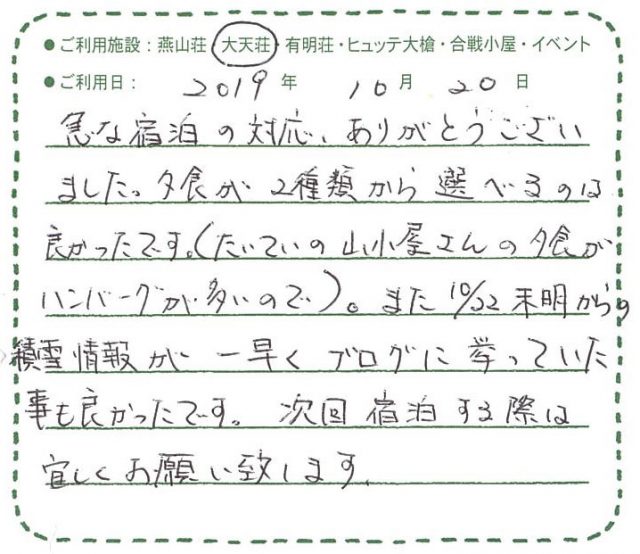 ●ご利用施設：燕山荘・大天荘・有明荘・ヒュッテ大槍・合戦小屋・イベント
●ご利用日： 2019 年 10 月 20 日
急な宿泊の対応、ありがとうござい
ました。夕食が2種類から選べるのは
良かったです。(たいていの山小屋さんの夕食が
ハンバーグが多いので)。また10/22未明からの
積雪情報が一早くブログに挙っていた
事も良かったです。次回宿泊する際は
宜しくお願い致します。